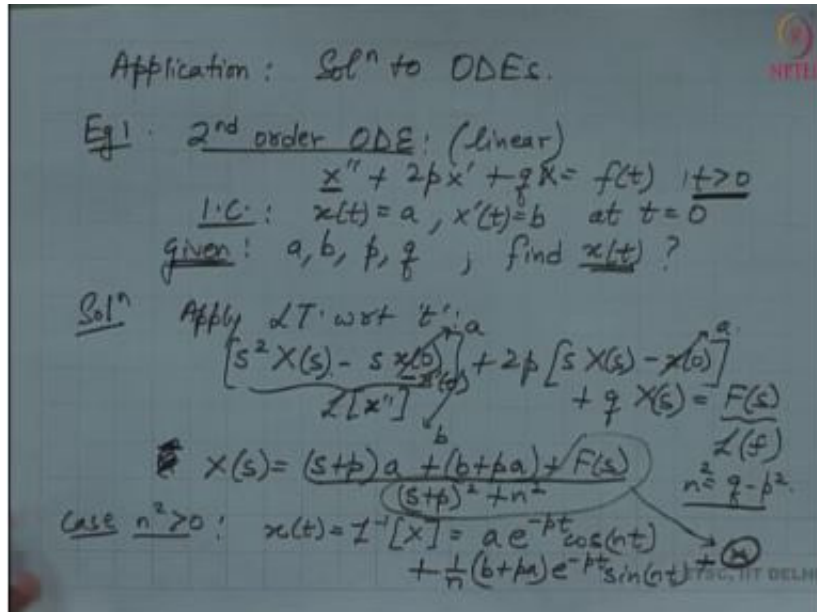 NPTEL
Application: Solⁿ to ODEs.
Eg1. 2nd order ODE: (linear)
x'' + 2px' + qx = f(t) , t>0
I.C.: x(t) = a , x'(t) = b at t = 0
given: a, b, p, q ; find x(t) ?
Solⁿ Apply LT. wrt 't'.
[s² X(s) - s x(0) - x'(0)] + 2p [s X(s) - x(0)]
a a
L[x''] b + q X(s) = F(s)
L(f)
X(s) = (s+p)a + (b+pa) + F(s)
(s+p)² + n²
n² = q - p².
Case n²>0: x(t) = L⁻¹[X] = a e^{-pt} cos(nt)
+ 1/n (b+pa) e^{-pt} sin(nt) + *
ETSC, IIT DELHI